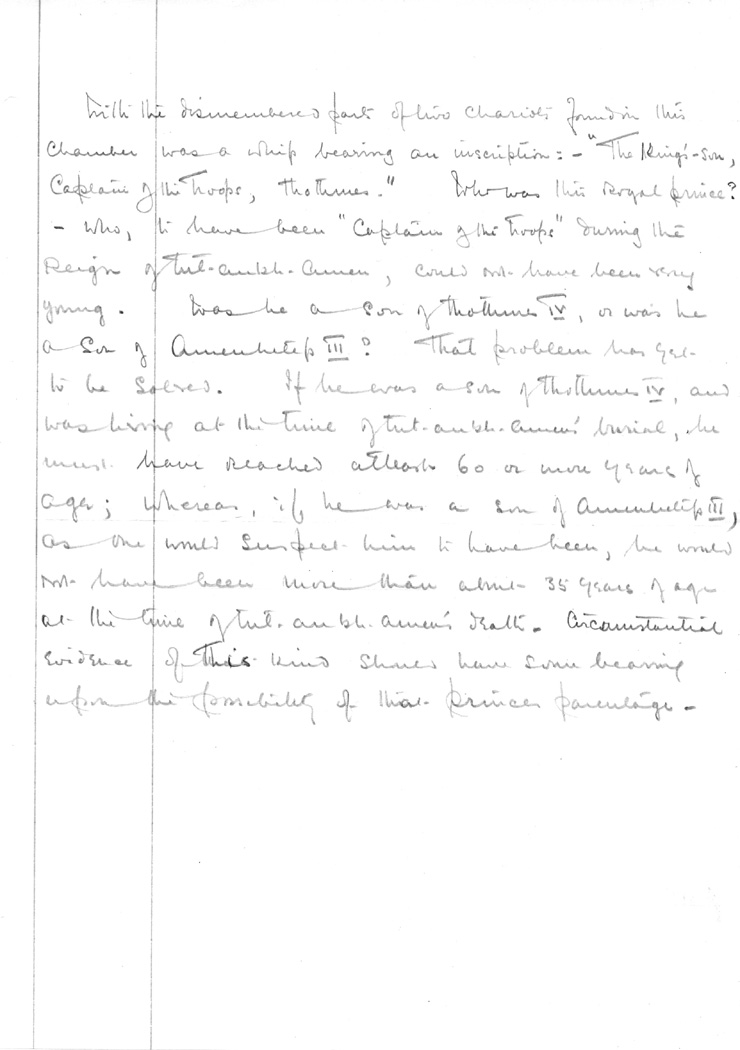 With the dismembered parts of two chariots found in this
chamber was a whip bearing an inscription: - "The King's-son,
Captain of the Troops, Thothmes." Who was this royal prince?
- who, to have been "Captain of the Troops" during the
Reign of Tut-ankh-Amen, could not have been very
young. Was he a son of Thothmes IV, or was he
a Son of Amenhetep III? That problem has yet
to be solved. If he was a son of Thothmes IV, and
was living at the time of Tut-ankh-Amen's burial, he
must have reached at least 60 or more years of
age; whereas, if he was a son of Amenhetep III,
as one would suspect him to have been, he would
not have been more than about 35 years of age
at the time of Tut-ankh-Amen's death. Circumstantial
evidence of this kind should have some bearing
upon the possibility of that princes parentage -